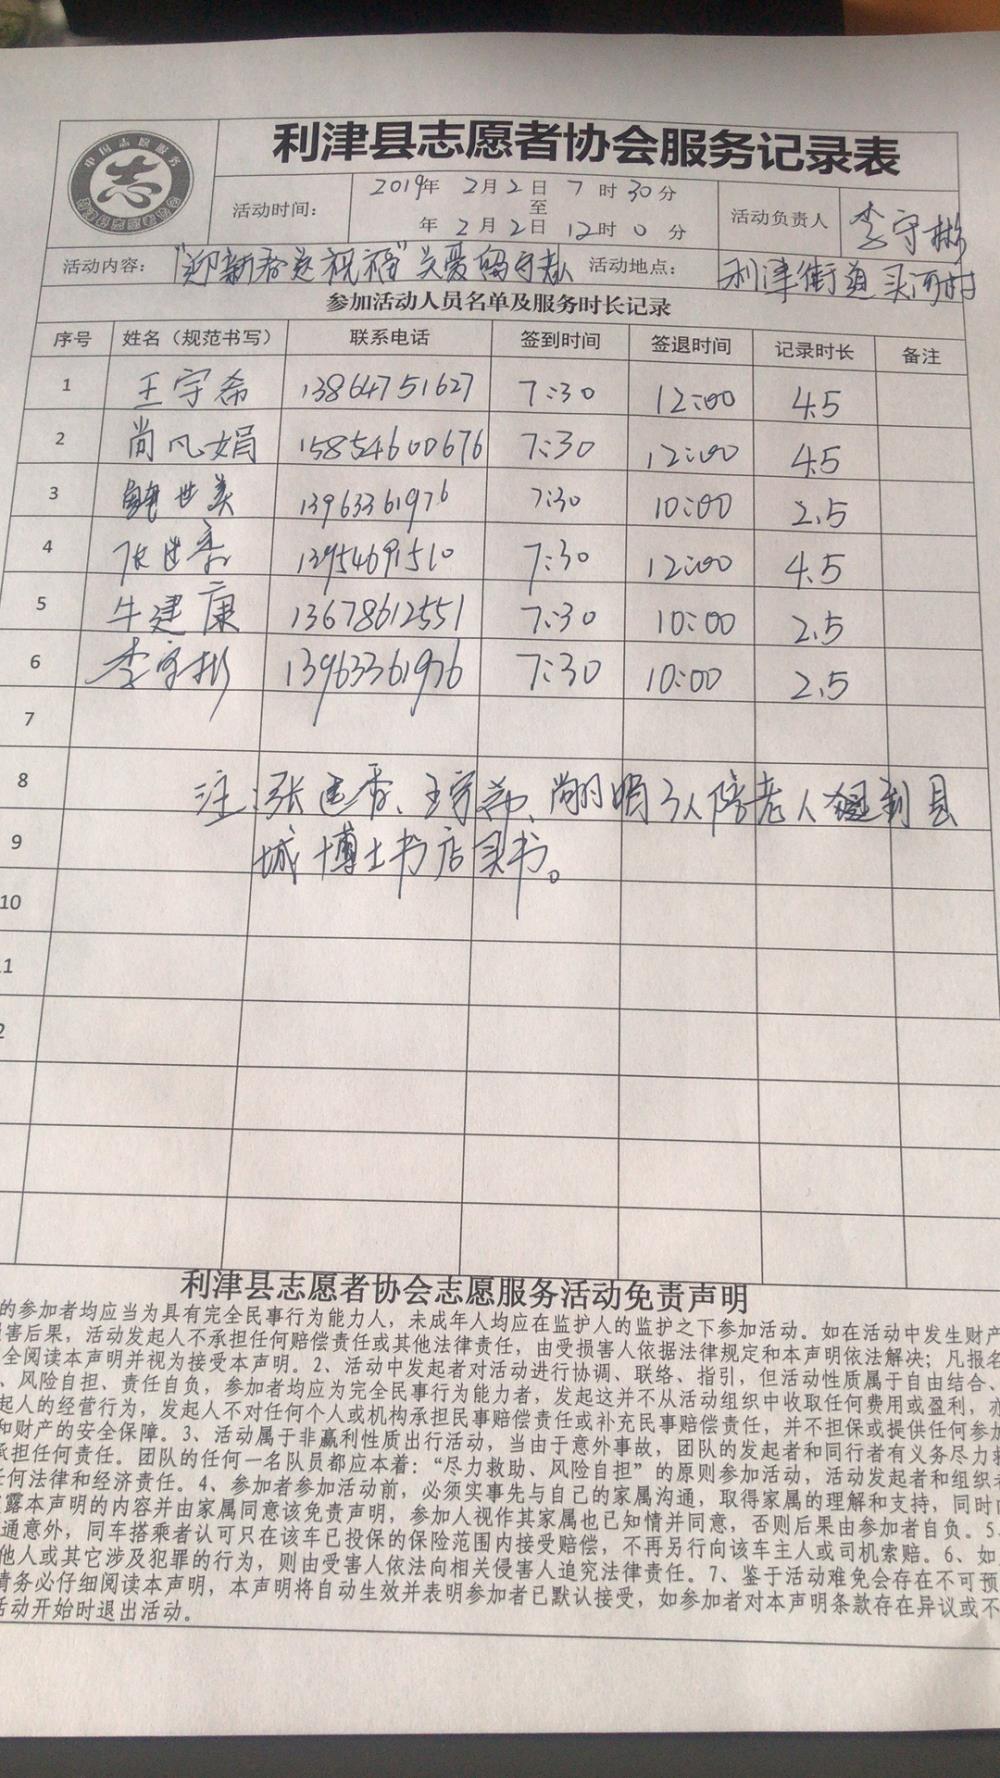 中国志愿服务
志
利津县志愿者协会服务记录表
活动时间：
2019年 2月2日 7时30分
至
年 2月2日 12时0分
活动负责人
李守彬
活动内容： "迎新春送祝福"关爱留守老人 活动地点： 利津街道
参加活动人员名单及服务时长记录
序号 姓名（规范书写） 联系电话 签到时间 签退时间 记录时长 备注
1 王宇希 13864751627 7:30 12:00 4.5
2 尚凡娟 15854600676 7:30 12:00 4.5
3 世美 13963361976 7:30 10:00 2.5
4 张建香 13954691510 7:30 12:00 4.5
5 牛建康 13678612551 7:30 10:00 2.5
6 李守彬 13963361976 7:30 10:00 2.5
7
8 注：张建香、王宇希、尚凡娟3人陪老人到县
9 城博士书店买书。
10
1
2
利津县志愿者协会志愿服务活动免责声明
的参加者均应当为具有完全民事行为能力人，未成年人均应在监护人的监护之下参加活动。如在活动中发生财产
损害后果，活动发起人不承担任何赔偿责任或其他法律责任，由受损害人依据法律规定和本声明依法解决；凡报名
全阅读本声明并视为接受本声明。2、活动中发起者对活动进行协调、联络、指引，但活动性质属于自由结合、
、风险自担、责任自负，参加者均应为完全民事行为能力者，发起这并不从活动组织中收取任何费用或盈利，亦
起人的经营行为，发起人不对任何个人或机构承担民事赔偿责任或补充民事赔偿责任，并不担保或提供任何参加
和财产的安全保障。3、活动属于非赢利性质出行活动，当由于意外事故，团队的发起者和同行者有义务尽力救
承担任何责任。团队的任何一名队员都应本着：“尽力救助、风险自担”的原则参加活动，活动发起者和组织者
任何法律和经济责任。4、参加者参加活动前，必须实事先与自己的家属沟通，取得家属的理解和支持，同时
露本声明的内容并由家属同意该免责声明，参加人视作其家属也已知情并同意，否则后果由参加者自负。5
通意外，同车搭乘者认可只在该车已投保的保险范围内接受赔偿，不再另行向该车主人或司机索赔。6、如
他人或其它涉及犯罪的行为，则由受害人依法向相关侵害人追究法律责任。7、鉴于活动难免会存在不可预
请务必仔细阅读本声明，本声明将自动生效并表明参加者已默认接受，如参加者对本声明条款存在异议或不
活动开始时退出活动。